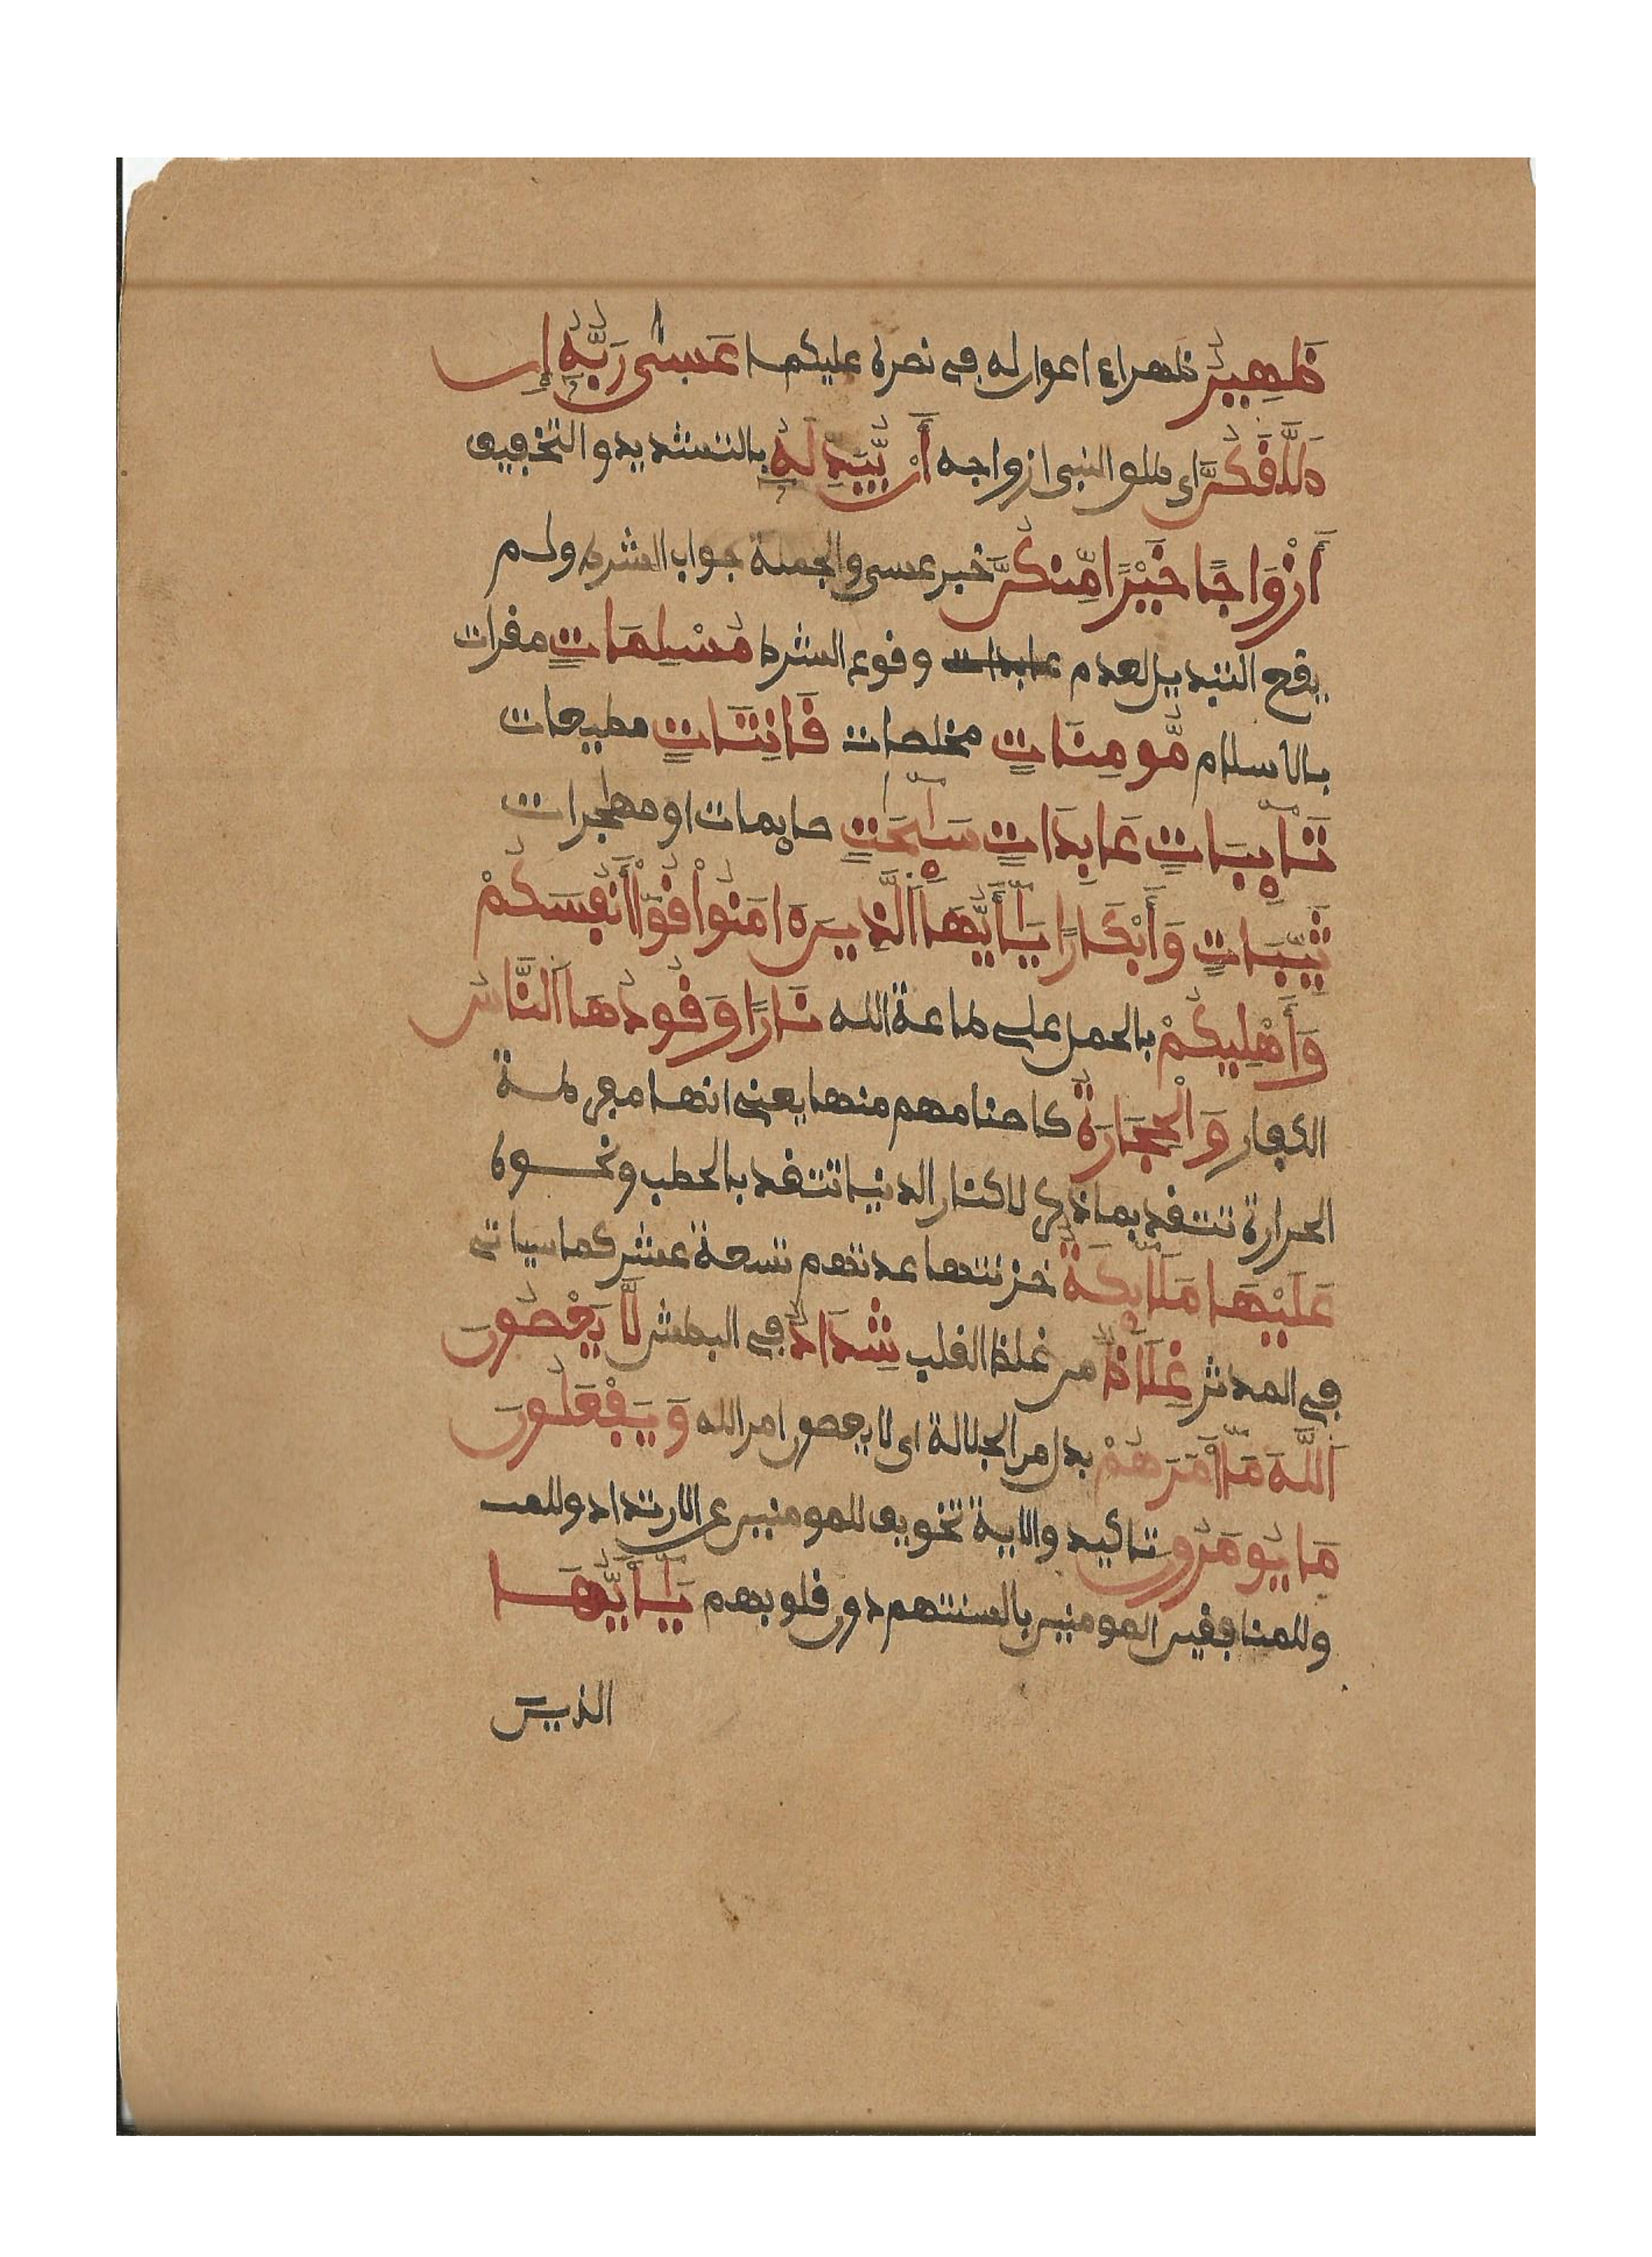 ظَهِيرٌ ظهراء اعوان له في نصره عليكما عَسَىٰ رَبُّهُۥ إِن
طَلَّقَكُنَّ اي طلق النبي ازواجه أَنْ يُّبَدِّلَهُۥ بالتشديد والتخفيف
أَزْوَاجًا خَيْرًا مِّنكُنَّ خبر عسى والجملة جواب الشرط ولم
يقع التبديل لعدم وقوع الشرط مُسْلِمَاتٍ مقرات
بالاسلام مُّومِنَاتٍ مخلصات قَانِتَاتٍ مطيعات
تَآئِبَاتٍ عَابِدَاتٍ سَٰٓئِحَٰتٍ صايمات او مهاجرات
ثَيِّبَاتٍ وَأَبْكَارًا يَٰٓأَيُّهَا اَلَّذِينَ ءَامَنُوا قُوٓا أَنفُسَكُمْ
وَأَهْلِيكُمْ بالحمل على طاعة الله نَارًا وَقُودُهَا اَلنَّاسُ
الكفار وَالْحِجَارَةُ كاصنامهم منها يعني انها مفرطة
الحرارة تتقد بما ذكر لا كنار الدنيا تتقد بالحطب ونحوه
عَلَيْهَا مَلَٰٓئِكَةٌ خزنتها عدتهم تسعة عشر كما سياتي
في المدثر غِلَاظٌ من غلظ القلب شِدَادٌ في البطش لَّا يَعْصُونَ
اَللَّهَ مَآ أَمَرَهُمْ بدل من الجلالة اي لا يعصون امر الله وَيَفْعَلُونَ
مَا يُومَرُونَ تاكيد والاية تخويف للمومنين عن الارتداد وللمـ
وللمنافقين المومنين بالسنتهم دون قلوبهم يَٰٓأَيُّهَا
الذين